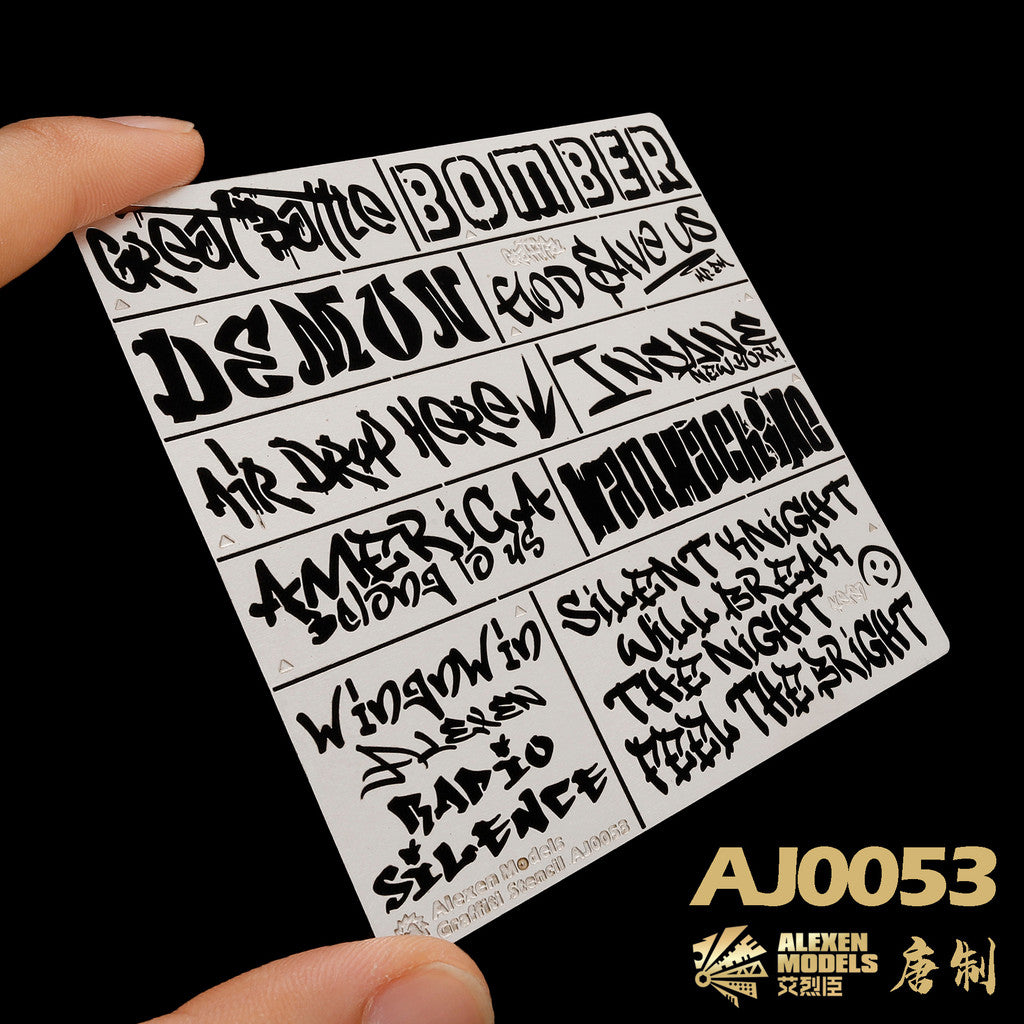 Great Battle
BOMBER
DEMON
GOD SAVE US
AIR DROP HERE
INSANE
NEW YORK
AMERICA
Belong to us
Man Machine
WingnWin
ALEXEN
RADIO
SILENCE
SILENT KNIGHT
WILL BREAK
THE NIGHT
FEEL THE BRIGHT
Alexen Models
Graffiti Stencil AJ0053
AJ0053
ALEXEN
MODELS
艾烈臣
唐制